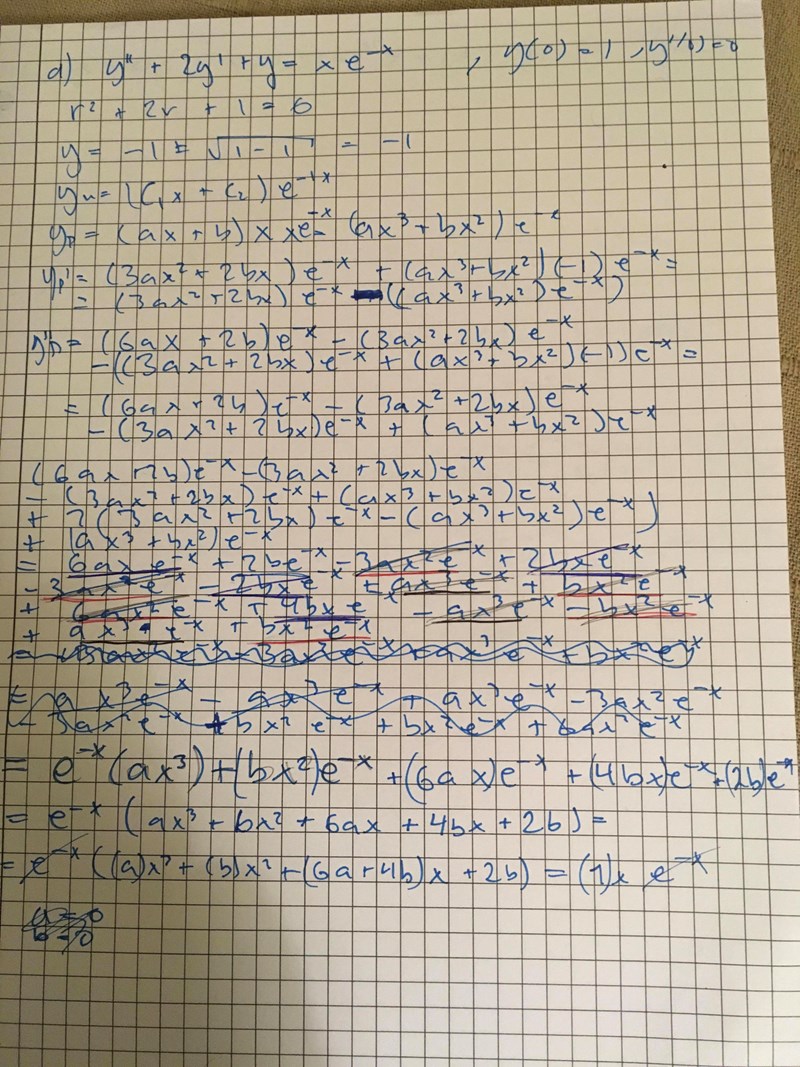 a) y" + 2y' + y = x e^-x , y(0) = 1 , y'(0) = 0
r² + 2r + 1 = 0
y = -1 ± √(1-1) = -1
y_H = (C₁x + C₂) e^-1x
y_p = (ax + b) x x e^-x = (ax³ + bx²) e^-x
y_p' = (3ax² + 2bx) e^-x + (ax³ + bx²)(-1) e^-x =
= (3ax² + 2bx) e^-x - ((ax³ + bx²) e^-x)
y"p = (6ax + 2b) e^-x - (3ax² + 2bx) e^-x
-((3ax² + 2bx) e^-x + (ax³ + bx²)(-1) e^-x =
= (6ax + 2b) e^-x - (3ax² + 2bx) e^-x
- (3ax² + 2bx) e^-x + (ax³ + bx²) e^-x
(6ax + 2b) e^-x - (3ax² + 2bx) e^-x
- (3ax² + 2bx) e^-x + (ax³ + bx²) e^-x
+ 2(3ax² + 2bx) e^-x - (ax³ + bx²) e^-x)
+ (ax³ + bx²) e^-x
= 6ax e^-x + 2be^-x - 3ax² e^-x + 2bx e^-x
- 3ax² e^-x - 2bx e^-x + ax³ e^-x + bx² e^-x
+ 6ax² e^-x + 4bx e^-x - ax³ e^-x - bx² e^-x
+ ax³ e^-x + bx² e^-x
= ax³ e^-x - ax³ e^-x + ax³ e^-x - 3ax² e^-x
3ax² e^-x + bx² e^-x + bx² e^-x + 6ax² e^-x
= e^-x (ax³) + (bx²) e^-x + (6ax) e^-x + (4bx) e^-x + (2b) e^-x
= e^-x (ax³ + bx² + 6ax + 4bx + 2b) =
= e^-x ((a)x³ + (b)x² + (6a + 4b)x + 2b) = (1)x e^-x
a = 0
b = 0